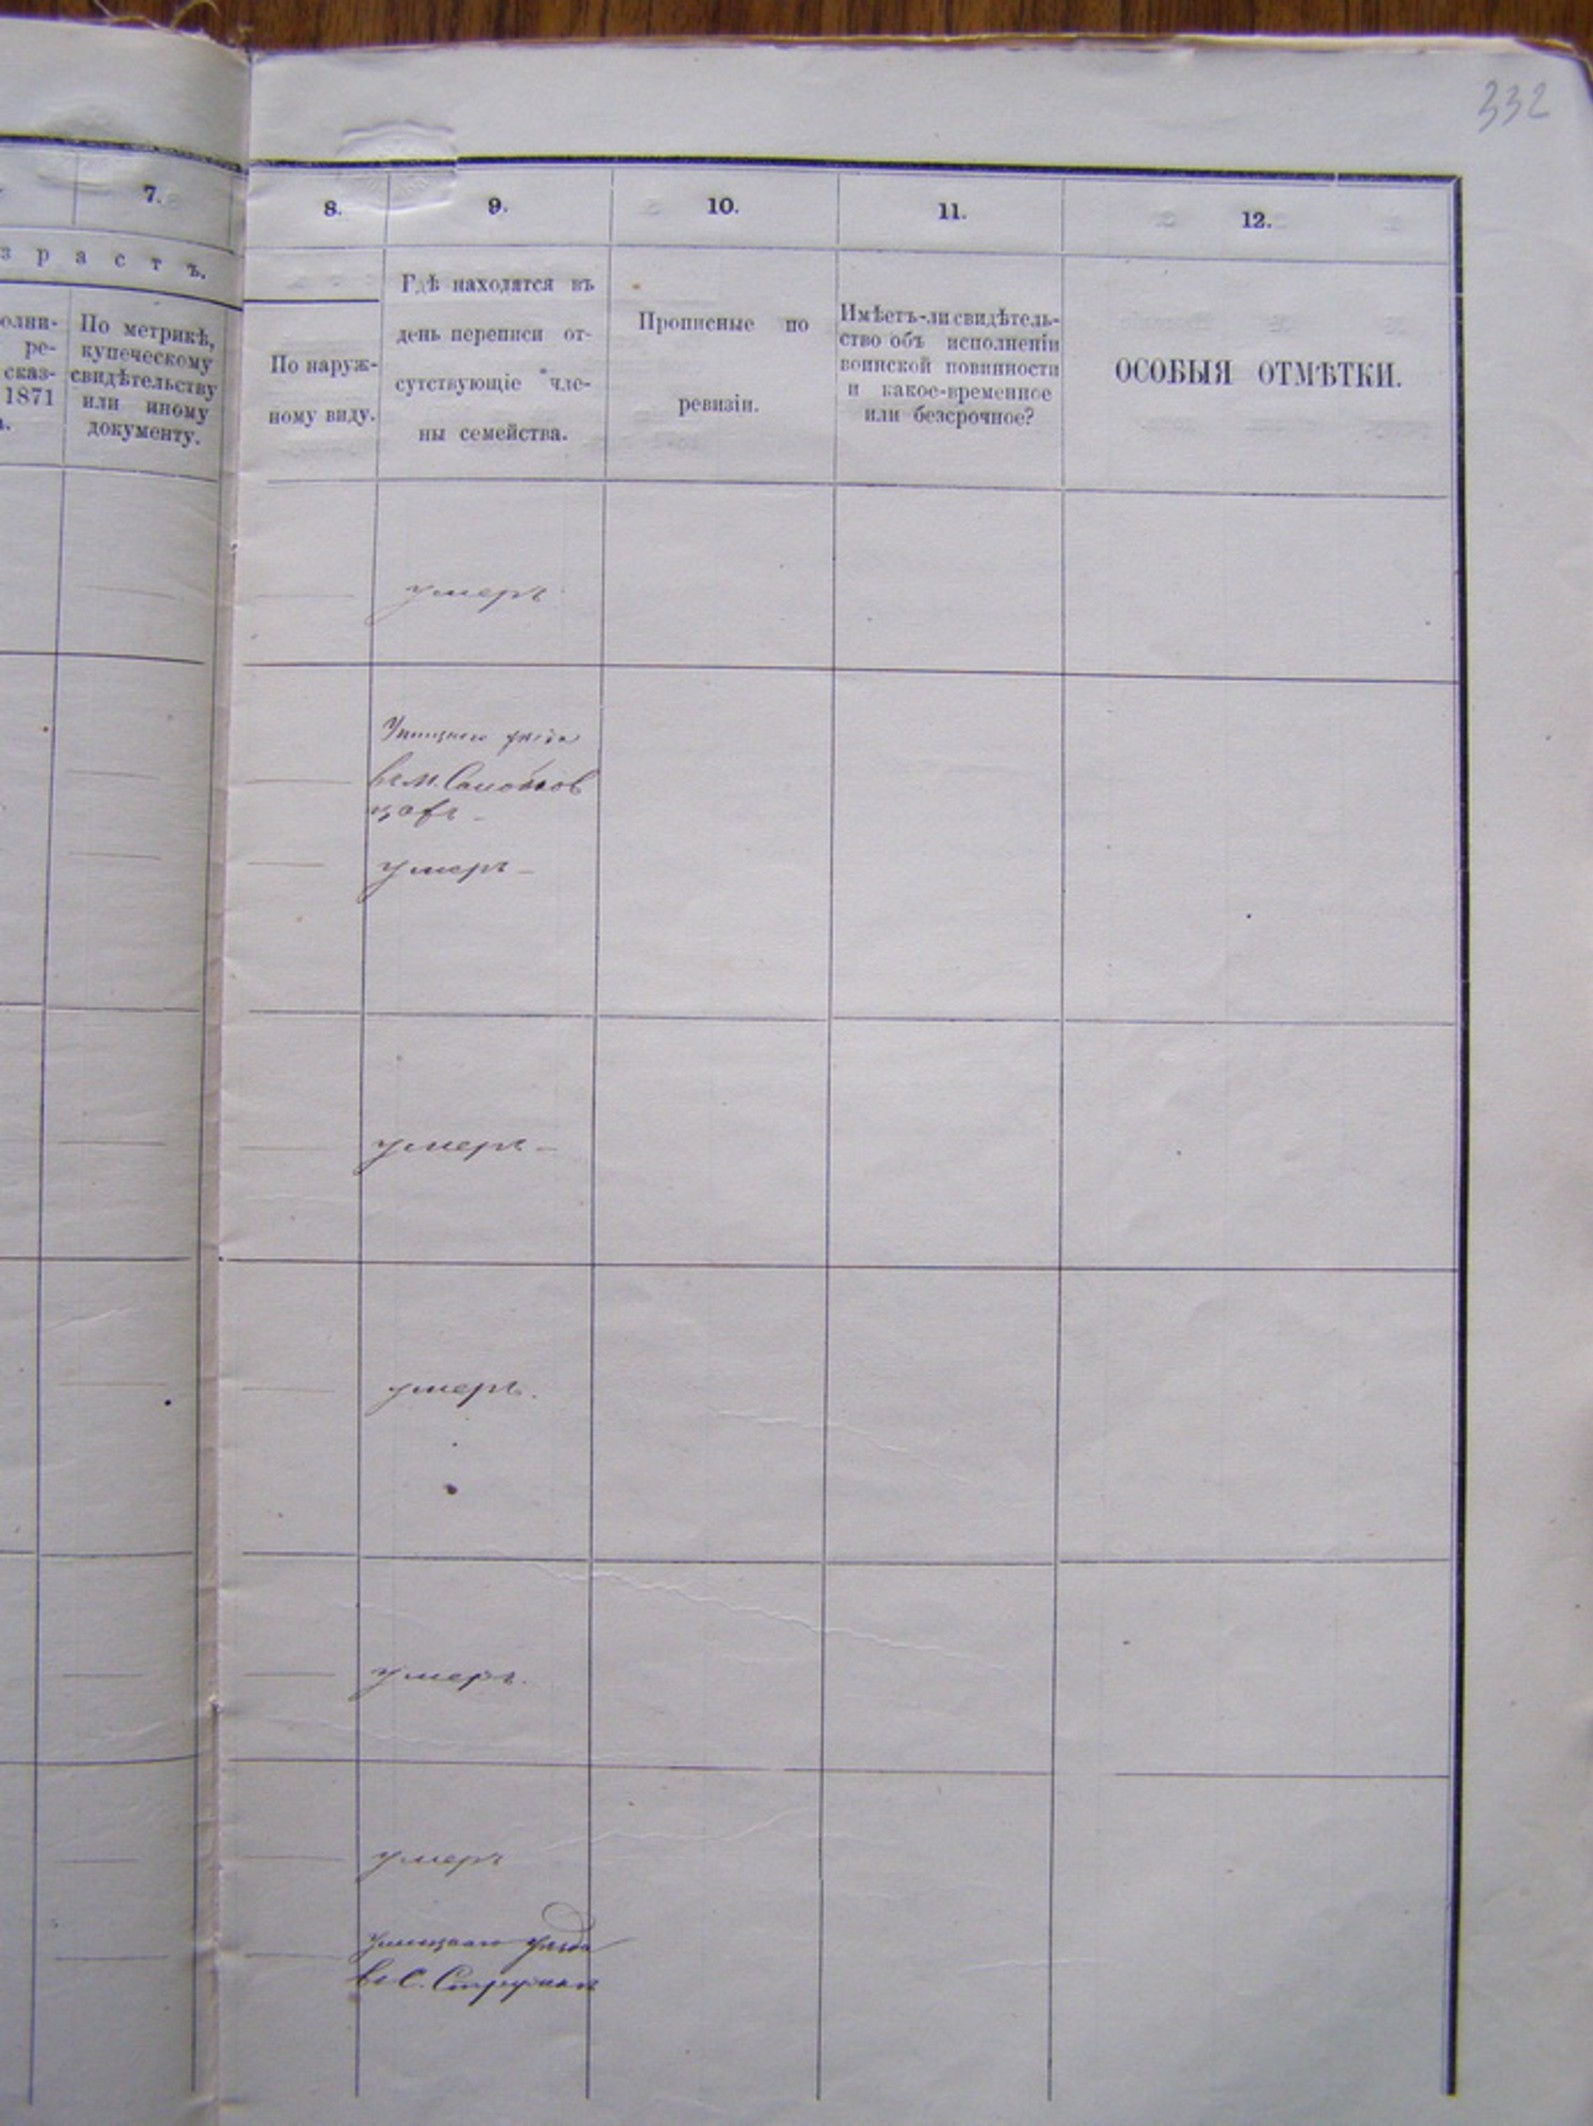 332
7.
8.
9.
10.
11.
12.
з р а с т ъ.
олни-
ре-
сказ-
1871
По метрикѣ,
купеческому
свидѣтельству
или иному
документу.
По наруж-
ному виду.
Гдѣ находятся въ
день переписи от-
сутствующіе чле-
ны семейства.
Прописные по
ревизіи.
Имѣетъ-ли свидѣтель-
ство объ исполненіи
воинской повинности
и какое-временное
или безсрочное?
ОСОБЫЯ ОТМѢТКИ.
умеръ
уѣзда
въ м.
умеръ
умеръ
умеръ.
умеръ.
умеръ
уѣзда
въ С.